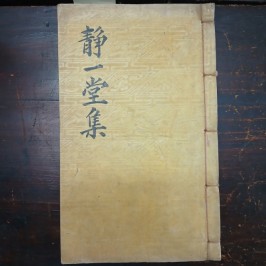 靜一堂集